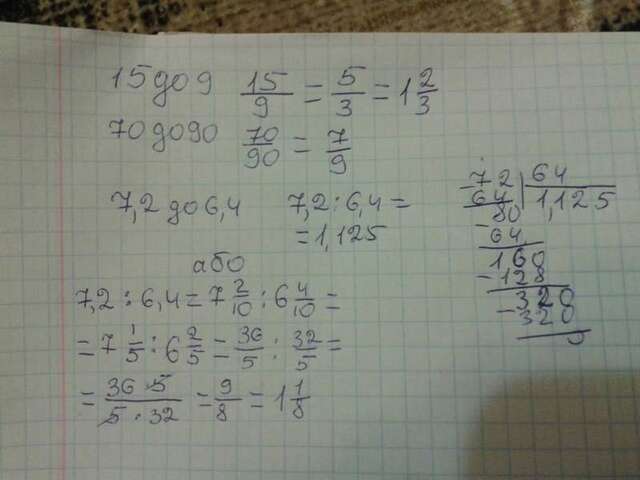 15 до 9 15/9 = 5/3 = 1 2/3
70 до 90 70/90 = 7/9
7,2 до 6,4 7,2 : 6,4 =
= 1,125
або
7,2 : 6,4 = 7 2/10 : 6 4/10 =
= 7 1/5 : 6 2/5 = 36/5 : 32/5 =
= 36 · 5/5 · 32 = 9/8 = 1 1/8
-72 | 64
64 | 1,125
80
-64
160
-128
320
-320
0